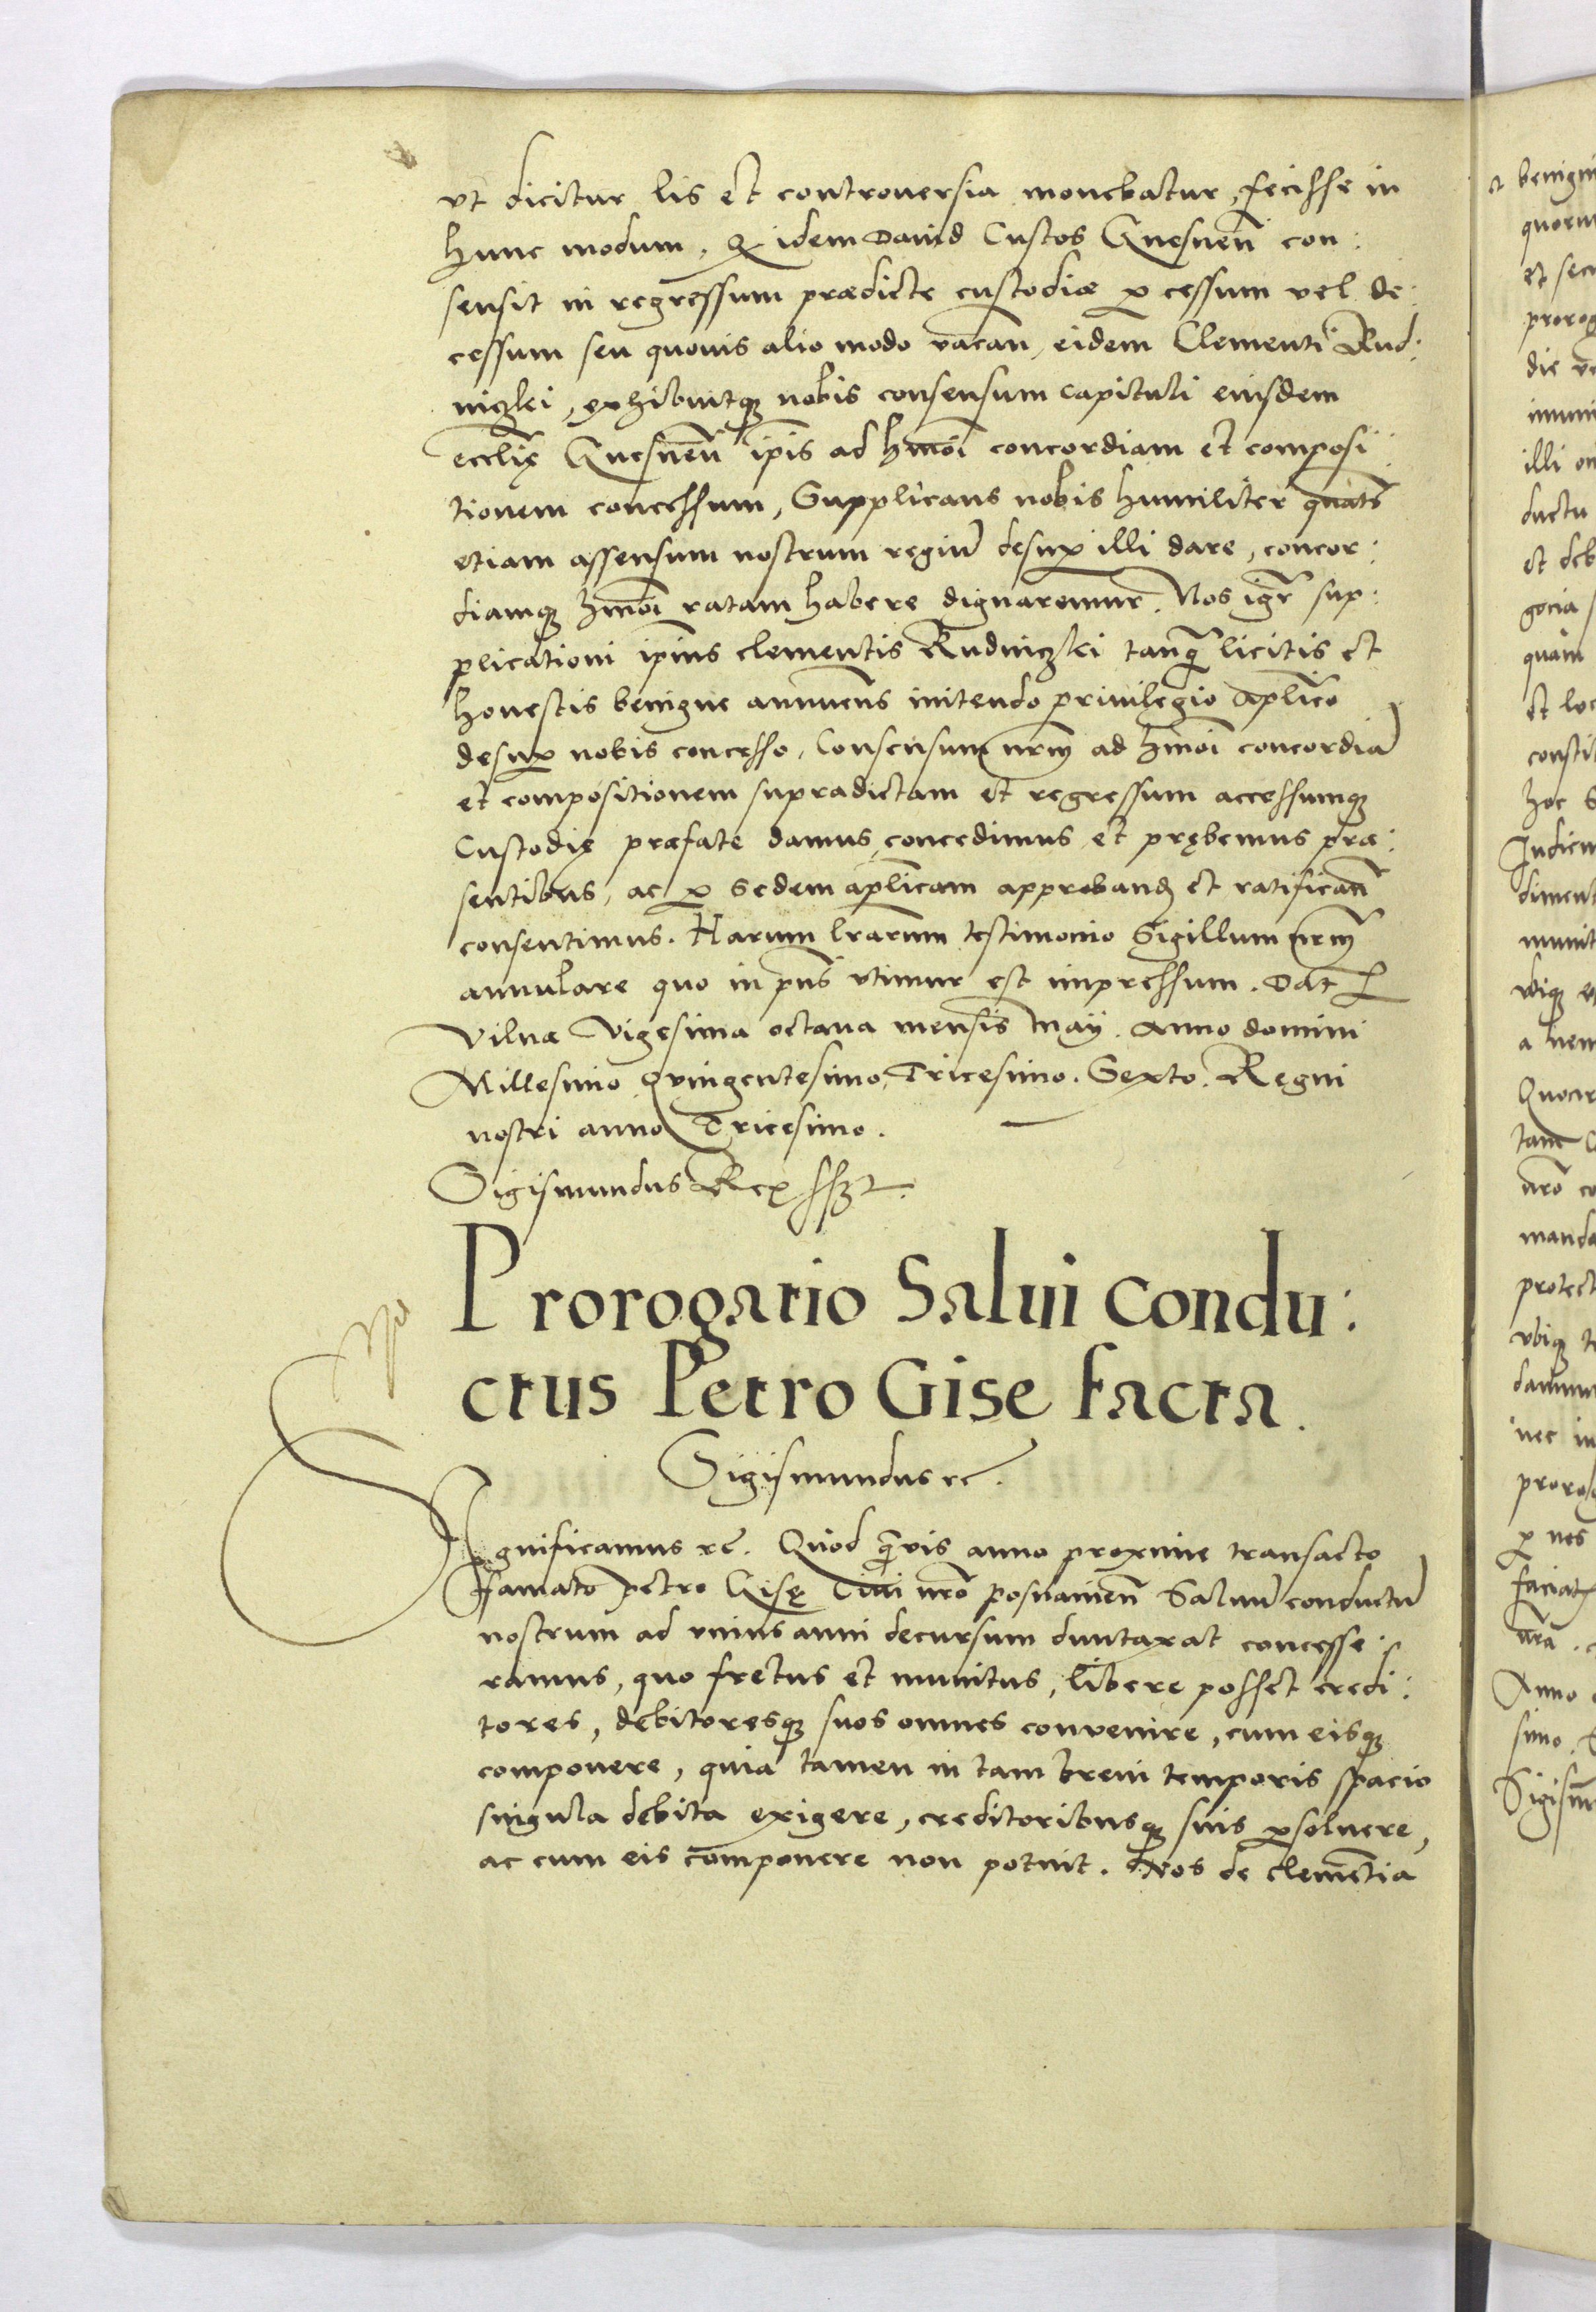 vt dicitur lis et controuersia mouebatur, fecisse in
hunc modum, Q idem Dauid Custos Gnesnen̄ con:
sensit in regressum prædicte custodiæ p cessum vel de:
cessum seu quouis alio modo vacan̄, eidem Clementi Rud:
niczki, exhibuitq; nobis consensum capituli eiusdem
ecclię Gnesnen̄ ip̄is ad hm̄oi concordiam et composi:
tionem concessum, Supplicans nobis humiliter quaten̄
etiam assensum nostrum regiū desup illi dare, concor:
diamq; hm̄oi ratam habere dignaremur. Nos igr̄ sup:
plicationi ip̄ius clementis Rudniczki tanq̄ licitis et
honestis benigne annuen̄s initendo priuilegio ap̄lico
desup nobis concesso, Consensum nr̄m ad hm̄oi concordiā
et compositionem supradictam et regressum accessumq;
Custodię præfate damus, concedimus et prębemus præ:
sentibus, ac p Sedem ap̄licam approband et ratifican̄
consentimus. Harum l̄rarum testimonio Sigillum nr̄m
annulare quo in pn̄s vtimur est impressum. Dat
Vilnæ Vigesima octaua mensis maij. Anno domini
Millesimo quingentesimo, Tricesimo. Sexto. Regni
nostri anno Tricesimo.
Sigismundus Rex sszt.
Prorogatio Salui condu:
ctus Petro Gise facta.
Sigismundus rc̄.
Significamus rc̄. Quod q̄uis anno proxime transacto
ffamato petro Gisę Ciui nr̄o posnanien̄ Saluū conductū
nostrum ad vnius anni decursum duntaxat concesse:
ramus, quo fretus et munitus, libere posset credi:
tores, debitoresq; suos omnes conuenire, cum eisq;
componere, quia tamen in tam breui temporis spacio
singula debita exigere, creditoribusq; suis psoluere,
ac cum eis componere non potuit. Nos de clementia